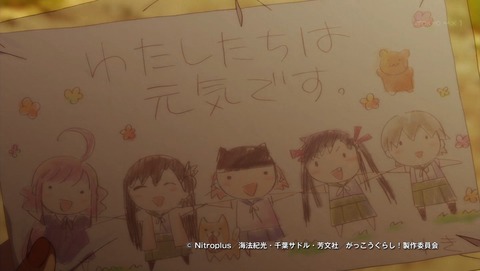 わたしたちは
元気です。
© Nitroplus　海法紀光・千葉サドル・芳文社　がっこうぐらし！製作委員会